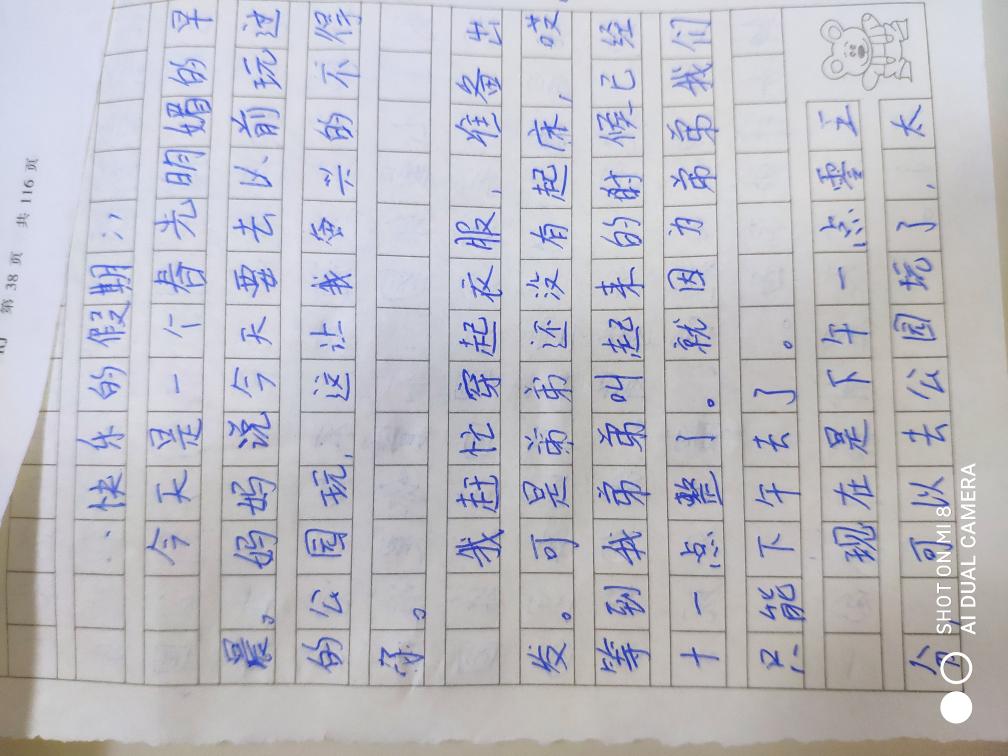 第 38 页 共 116 页
快乐的假期
今天是一个春光明媚的早
晨。妈妈说今天要去以前玩过
的公园玩，这让我高兴的不得
了。
我赶忙穿起衣服，准备出
发。可是弟弟还没有起床，哎
等到我弟弟叫起来的时候已经
十一点整了。就因为弟弟我们
只能下午去了。
现在是下午一点零五
分，可以去公园玩了，太
SHOT ON MI 8
AI DUAL CAMERA